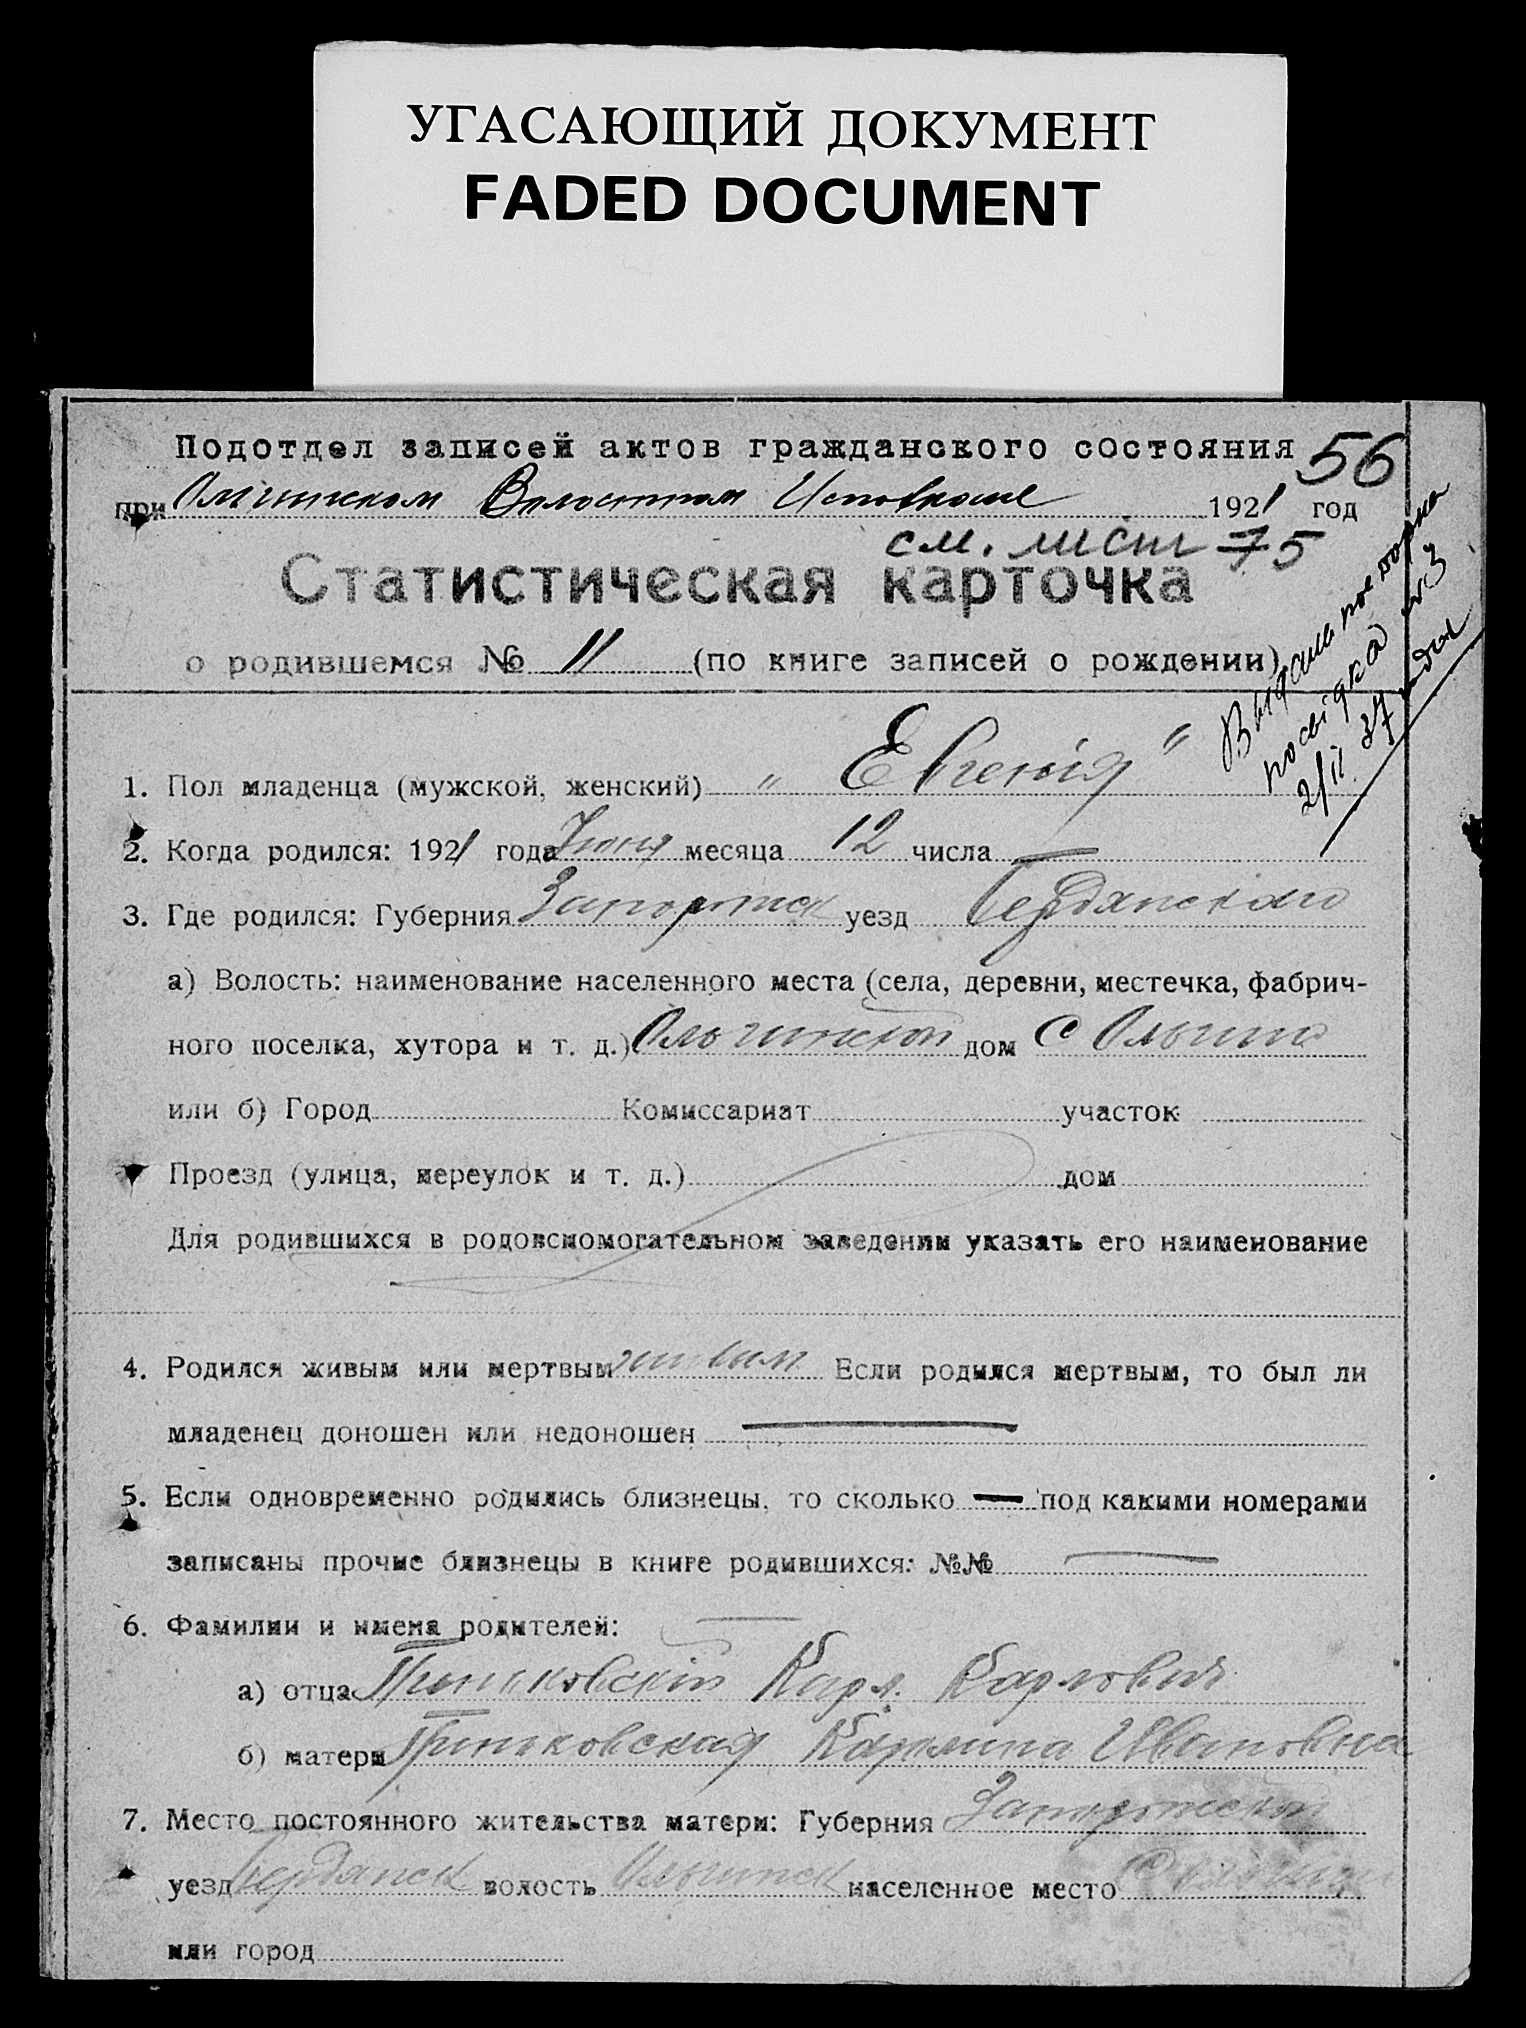 УГАСАЮЩИЙ ДОКУМЕНТ
FADED DOCUMENT
Подотдел записей актов гражданского состояния 56
при Ольгинском Волостном Исполкоме 1921 год
см. лист 75
Статистическая карточка
о родившемся № 11 (по книге записей о рождении)
Выдана повторна
посвідка №3
2/II 37
1. Пол младенца (мужской, женский) " Евгенія "
2. Когда родился: 1921 года Июня месяца 12 числа
3. Где родился: Губерния Запорожск уезд Бердянского
а) Волость: наименование населенного места (села, деревни, местечка, фабрич-
ного поселка, хутора и т. д.) Ольгинской дом с Ольгино
или б) Город Комиссариат участок
Проезд (улица, переулок и т. д.) дом
Для родившихся в родовспомогательном заведении указать его наименование
4. Родился живым или мертвым живым Если родился мертвым, то был ли
младенец доношен или недоношен —
5. Если одновременно родились близнецы, то сколько — под какими номерами
записаны прочие близнецы в книге родившихся: №№ —
6. Фамилии и имена родителей:
а) отца Карл Карлович
б) матери Каролина Ивановна
7. Место постоянного жительства матери: Губерния Запорожской
уезд Бердянск волость Ольгинск населенное место
или город